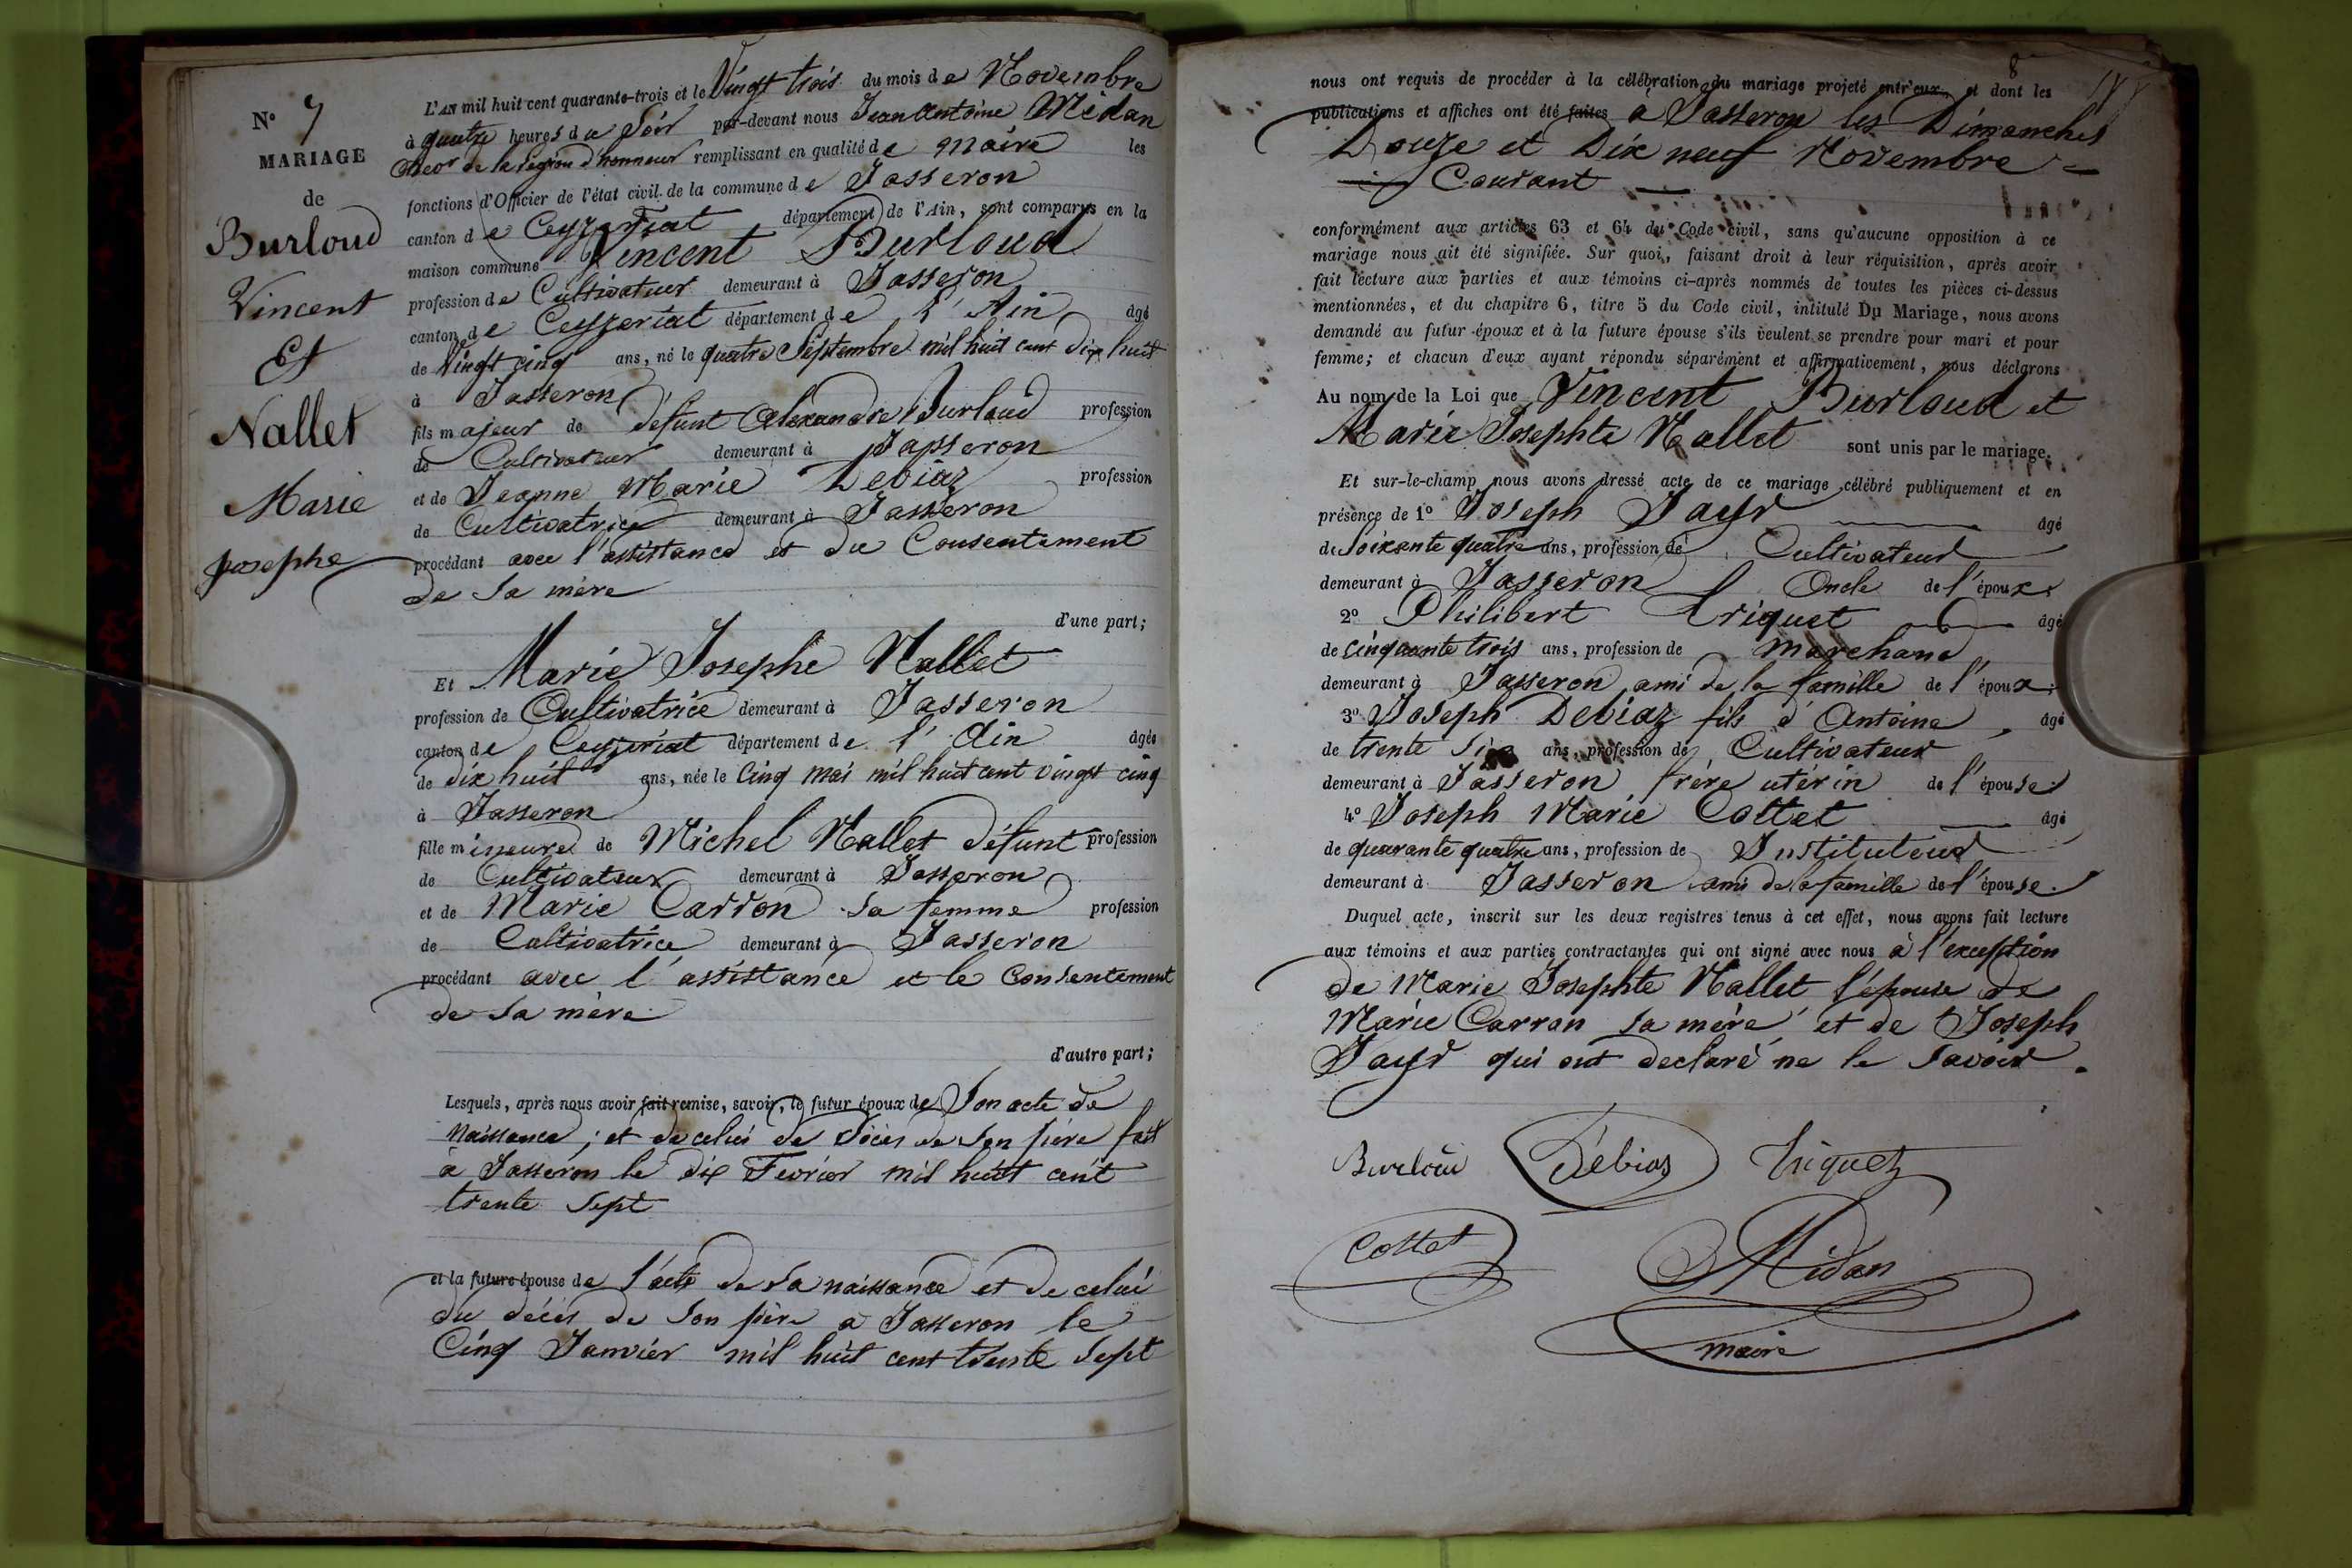 N° 7
MARIAGE
de
Burloud
Vincent
Et
Nallet
Marie
Josephe
L'AN mil huit cent quarante-trois et le Vingt trois du mois de Novembre
à quatre heures du Soir par-devant nous Jean Antoine Midan
Chevr de la Légion d'honneur remplissant en qualité de maire les
fonctions d'Officier de l'état civil de la commune de Jasseron
canton de Ceyzeriat département de l'Ain, sont comparus en la
maison commune Vincent Burloud
profession de Cultivateur demeurant à Jasseron
canton de Ceyzeriat département de L'Ain âgé
de Vingt cinq ans, né le quatre Septembre mil huit cent dix huit
à Jasseron
fils majeur de défunt Alexandre Burloud profession
de Cultivateur demeurant à Jasseron
et de Jeanne Marie Debiaz profession
de Cultivatrice demeurant à Jasseron
procédant avec l'assistance et du Consentement
de Sa mère
d'une part;
Et Marie Josephe Nallet
profession de Cultivatrice demeurant à Jasseron
canton de Ceyzeriat département de l'Ain âgée
de dix huit ans, née le Cinq mai mil huit cent vingt cinq
à Jasseron
fille mineure de Michel Nallet défunt profession
de Cultivateur demeurant à Jasseron
et de Marie Carron sa femme profession
de Cultivatrice demeurant à Jasseron
procédant avec l'assistance et le Consentement
de sa mère
d'autre part;
Lesquels, après nous avoir fait remise, savoir, le futur époux de Son acte de
Naissance; et de celui de décès de Son père fait
à Jasseron le dix Fevrier mil huit cent
trente Sept
et la future épouse de l'acte de Sa naissance et de celui
du décès de Son père à Jasseron le
Cinq Janvier mil huit cent trente Sept
8
nous ont requis de procéder à la célébration du mariage projeté entr'eux, et dont les
publications et affiches ont été faites à Jasseron les Dimanches
Douze et Dix neuf Novembre
Courant
conformément aux articles 63 et 64 du Code civil, sans qu'aucune opposition à ce
mariage nous ait été signifiée. Sur quoi, faisant droit à leur réquisition, après avoir
fait lecture aux parties et aux témoins ci-après nommés de toutes les pièces ci-dessus
mentionnées, et du chapitre 6, titre 5 du Code civil, intitulé Du Mariage, nous avons
demandé au futur époux et à la future épouse s'ils veulent se prendre pour mari et pour
femme; et chacun d'eux ayant répondu séparément et affirmativement, nous déclarons
Au nom de la Loi que Vincent Burloud et
Marie Josephte Nallet sont unis par le mariage.
Et sur-le-champ nous avons dressé acte de ce mariage célébré publiquement et en
présence de 1° Joseph Jayr âgé
de Soixante quatre ans, profession de Cultivateur
demeurant à Jasseron Oncle de l'époux
2° Philibert Triquet âgé
de Cinquante trois ans, profession de Marchand
demeurant à Jasseron ami de la famille de l'époux;
3° Joseph Debiaz fils d'Antoine, âgé
de trente Six ans, profession de Cultivateur
demeurant à Jasseron frère utérin de l'épouse
4° Joseph Marie Cottet âgé
de quarante quatre ans, profession de Instituteur
demeurant à Jasseron ami de la famille de l'épouse.
Duquel acte, inscrit sur les deux registres tenus à cet effet, nous avons fait lecture
aux témoins et aux parties contractantes qui ont signé avec nous à l'exception
de Marie Josephte Nallet l'épouse de
Marie Carron sa mère, et de Joseph
Jayr qui ont declaré ne le Savoir.
Burloud Débias Triquet
Cottet Midan
maire